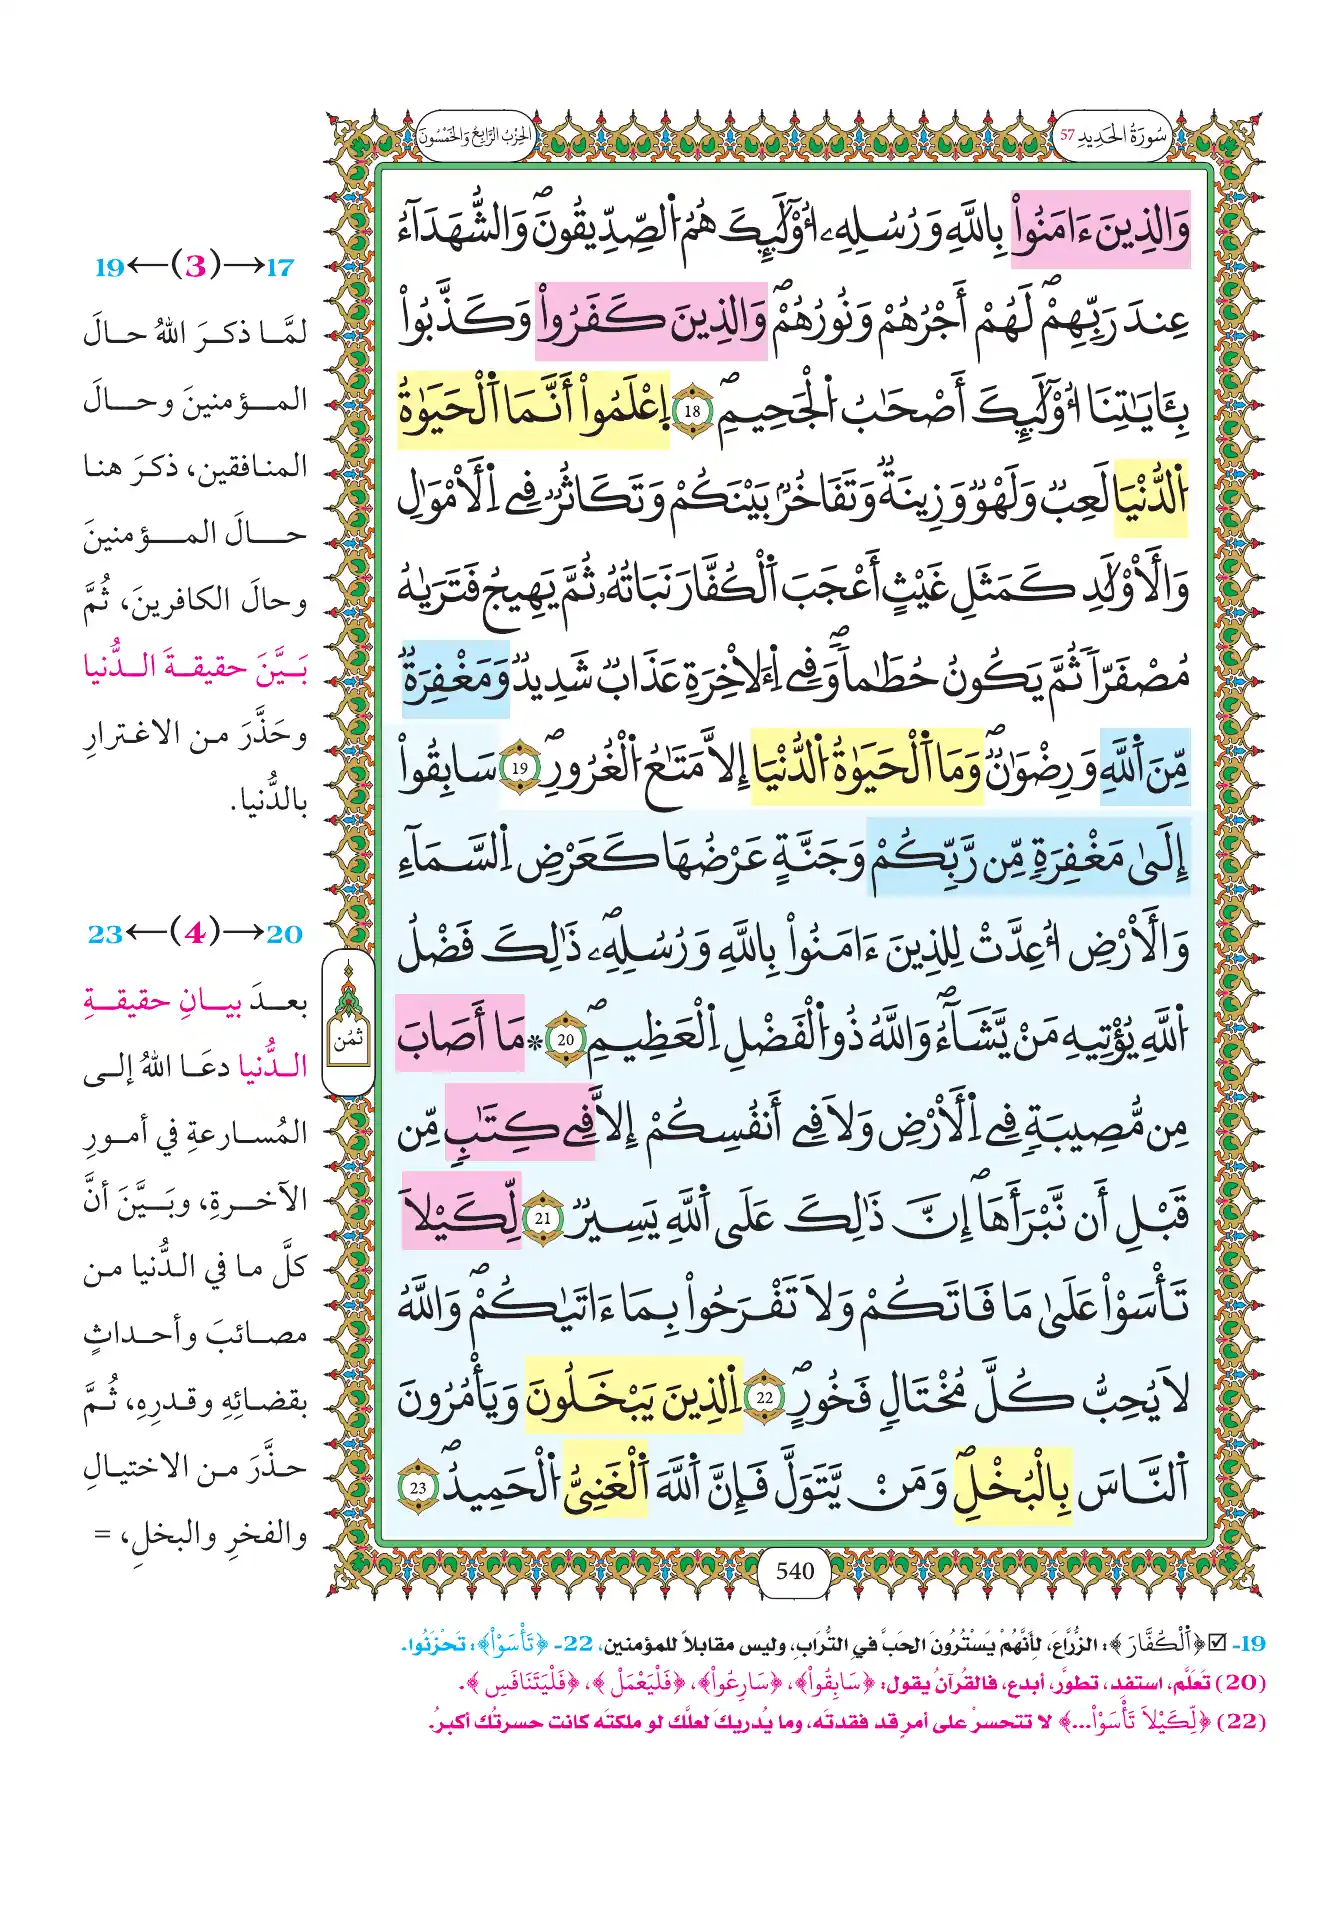 سُورَةُ الْحَدِيدِ 57
الحِزْبُ الرَّابِعُ وَالخَمْسُونَ
وَالذِينَ ءَامَنُواْ بِاللَّهِ وَرُسُلِهِۦٓ أُوْلَٰٓئِكَ هُمُ الصِّدِّيقُونَۖ وَالشُّهَدَآءُ
عِندَ رَبِّهِمْۖ لَهُمْ أَجْرُهُمْ وَنُورُهُمْۖ وَالذِينَ كَفَرُواْ وَكَذَّبُواْ
بِـَٔايَٰتِنَآ أُوْلَٰٓئِكَ أَصْحَٰبُ الْجَحِيمِۖ 18 اِعْلَمُوٓاْ أَنَّمَا اَلْحَيَوٰةُ
الدُّنْيَا لَعِبٌ وَلَهْوٌ وَزِينَةٌ وَتَفَاخُرٌۢ بَيْنَكُمْ وَتَكَاثُرٌ فِي اِلَامْوَٰلِ
وَالَاوْلَٰدِ كَمَثَلِ غَيْثٍ أَعْجَبَ اَلْكُفَّارَ نَبَاتُهُۥ ثُمَّ يَهِيجُ فَتَرَيٰهُ
مُصْفَرّاٗ ثُمَّ يَكُونُ حُطَٰماٗۖ وَفِي اِلَاخِرَةِ عَذَابٌ شَدِيدٌ وَمَغْفِرَةٌ
مِّنَ اَللَّهِ وَرِضْوَٰنٌۖ وَمَا اَلْحَيَوٰةُ الدُّنْيَآ إِلَّا مَتَٰعُ الْغُرُورِۖ 19 سَابِقُوٓاْ
إِلَىٰ مَغْفِرَةٍ مِّن رَّبِّكُمْ وَجَنَّةٍ عَرْضُهَا كَعَرْضِ اِلسَّمَآءِ
وَالَارْضِ أُعِدَّتْ لِلذِينَ ءَامَنُواْ بِاللَّهِ وَرُسُلِهِۦۖ ذَٰلِكَ فَضْلُ
اُللَّهِ يُؤْتِيهِ مَنْ يَّشَآءُۖ وَاللَّهُ ذُو الْفَضْلِ اِلْعَظِيمِۖ 20 ۞ مَآ أَصَابَ
مِن مُّصِيبَةٍ فِي اِلَارْضِ وَلَا فِيٓ أَنفُسِكُمْ إِلَّا فِي كِتَٰبٍ مِّن
قَبْلِ أَن نَّبْرَأَهَآۖ إِنَّ ذَٰلِكَ عَلَى اَللَّهِ يَسِيرٌ 21 لِّكَيْلَا
تَأْسَوْاْ عَلَىٰ مَا فَاتَكُمْ وَلَا تَفْرَحُواْ بِمَآ ءَاتَيٰكُمْۖ وَاللَّهُ
لَا يُحِبُّ كُلَّ مُخْتَالٍ فَخُورٍۖ 22 اِلذِينَ يَبْخَلُونَ وَيَأْمُرُونَ
اَلنَّاسَ بِالْبُخْلِۖ وَمَنْ يَّتَوَلَّ فَإِنَّ اَللَّهَ اَلْغَنِيُّ الْحَمِيدُۖ 23
540
ثُمُن
19←(3)→17
لمَّا ذكرَ اللهُ حالَ
المؤمنينَ وحالَ
المنافقين، ذكرَ هنا
حالَ المؤمنينَ
وحالَ الكافرينَ، ثُمَّ
بَيَّنَ حقيقةَ الدُّنيا
وحَذَّرَ من الاغترارِ
بالدُّنيا.
23←(4)→20
بعدَ بيانِ حقيقةِ
الدُّنيا دعَا اللهُ إلى
المُسارعةِ في أمورِ
الآخرةِ، وبَيَّنَ أنَّ
كلَّ ما في الدُّنيا من
مصائبَ وأحداثٍ
بقضائِهِ وقدرِهِ، ثُمَّ
حذَّرَ من الاختيالِ
والفخرِ والبخلِ، =
19- ☑ ﴿اَلْكُفَّارَ﴾: الزُّرَّاعَ، لأَنَّهُمْ يَسْتُرُونَ الحَبَّ في التُّرَابِ، وليس مقابلاً للمؤمنين، 22- ﴿تَأْسَوْاْ﴾: تَحْزَنُوا.
(20) تَعلَّم، استفد، تطوَّر، أبدع، فالقُرآنُ يقول: ﴿سَابِقُواْ﴾، ﴿سَارِعُواْ﴾، ﴿فَلْيَعْمَلْ﴾، ﴿فَلْيَتَنَافَسِ﴾.
(22) ﴿لِّكَيْلَا تَأْسَوْاْ...﴾ لا تتحسرْ على أمرٍ قد فقدتَه، وما يُدريكَ لعلَّك لو ملكتَه كانت حسرتُك أكبرُ.